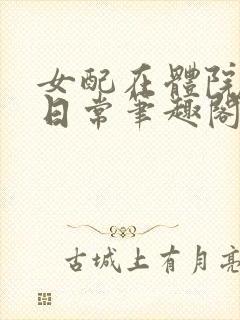 女配在體院
日常筆趣閣
古城上有月亮